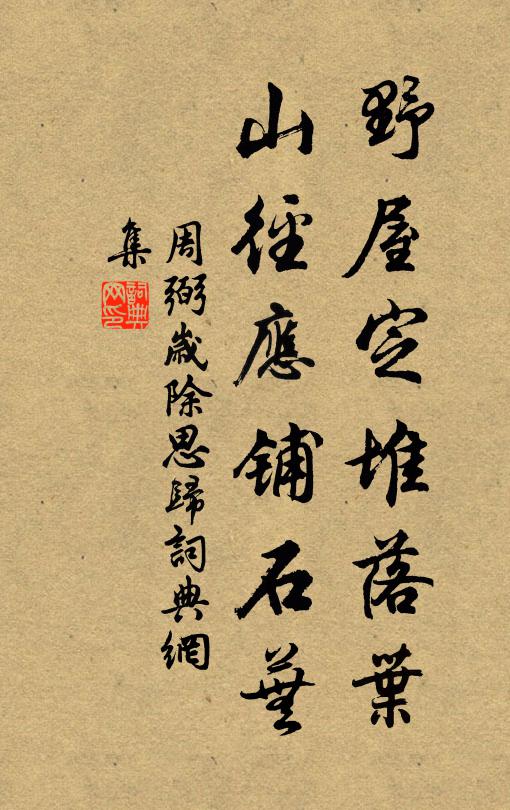 野屋定堆落葉
山徑應鋪石蕪
周弼歲除思歸詞典網
集
詞典網印